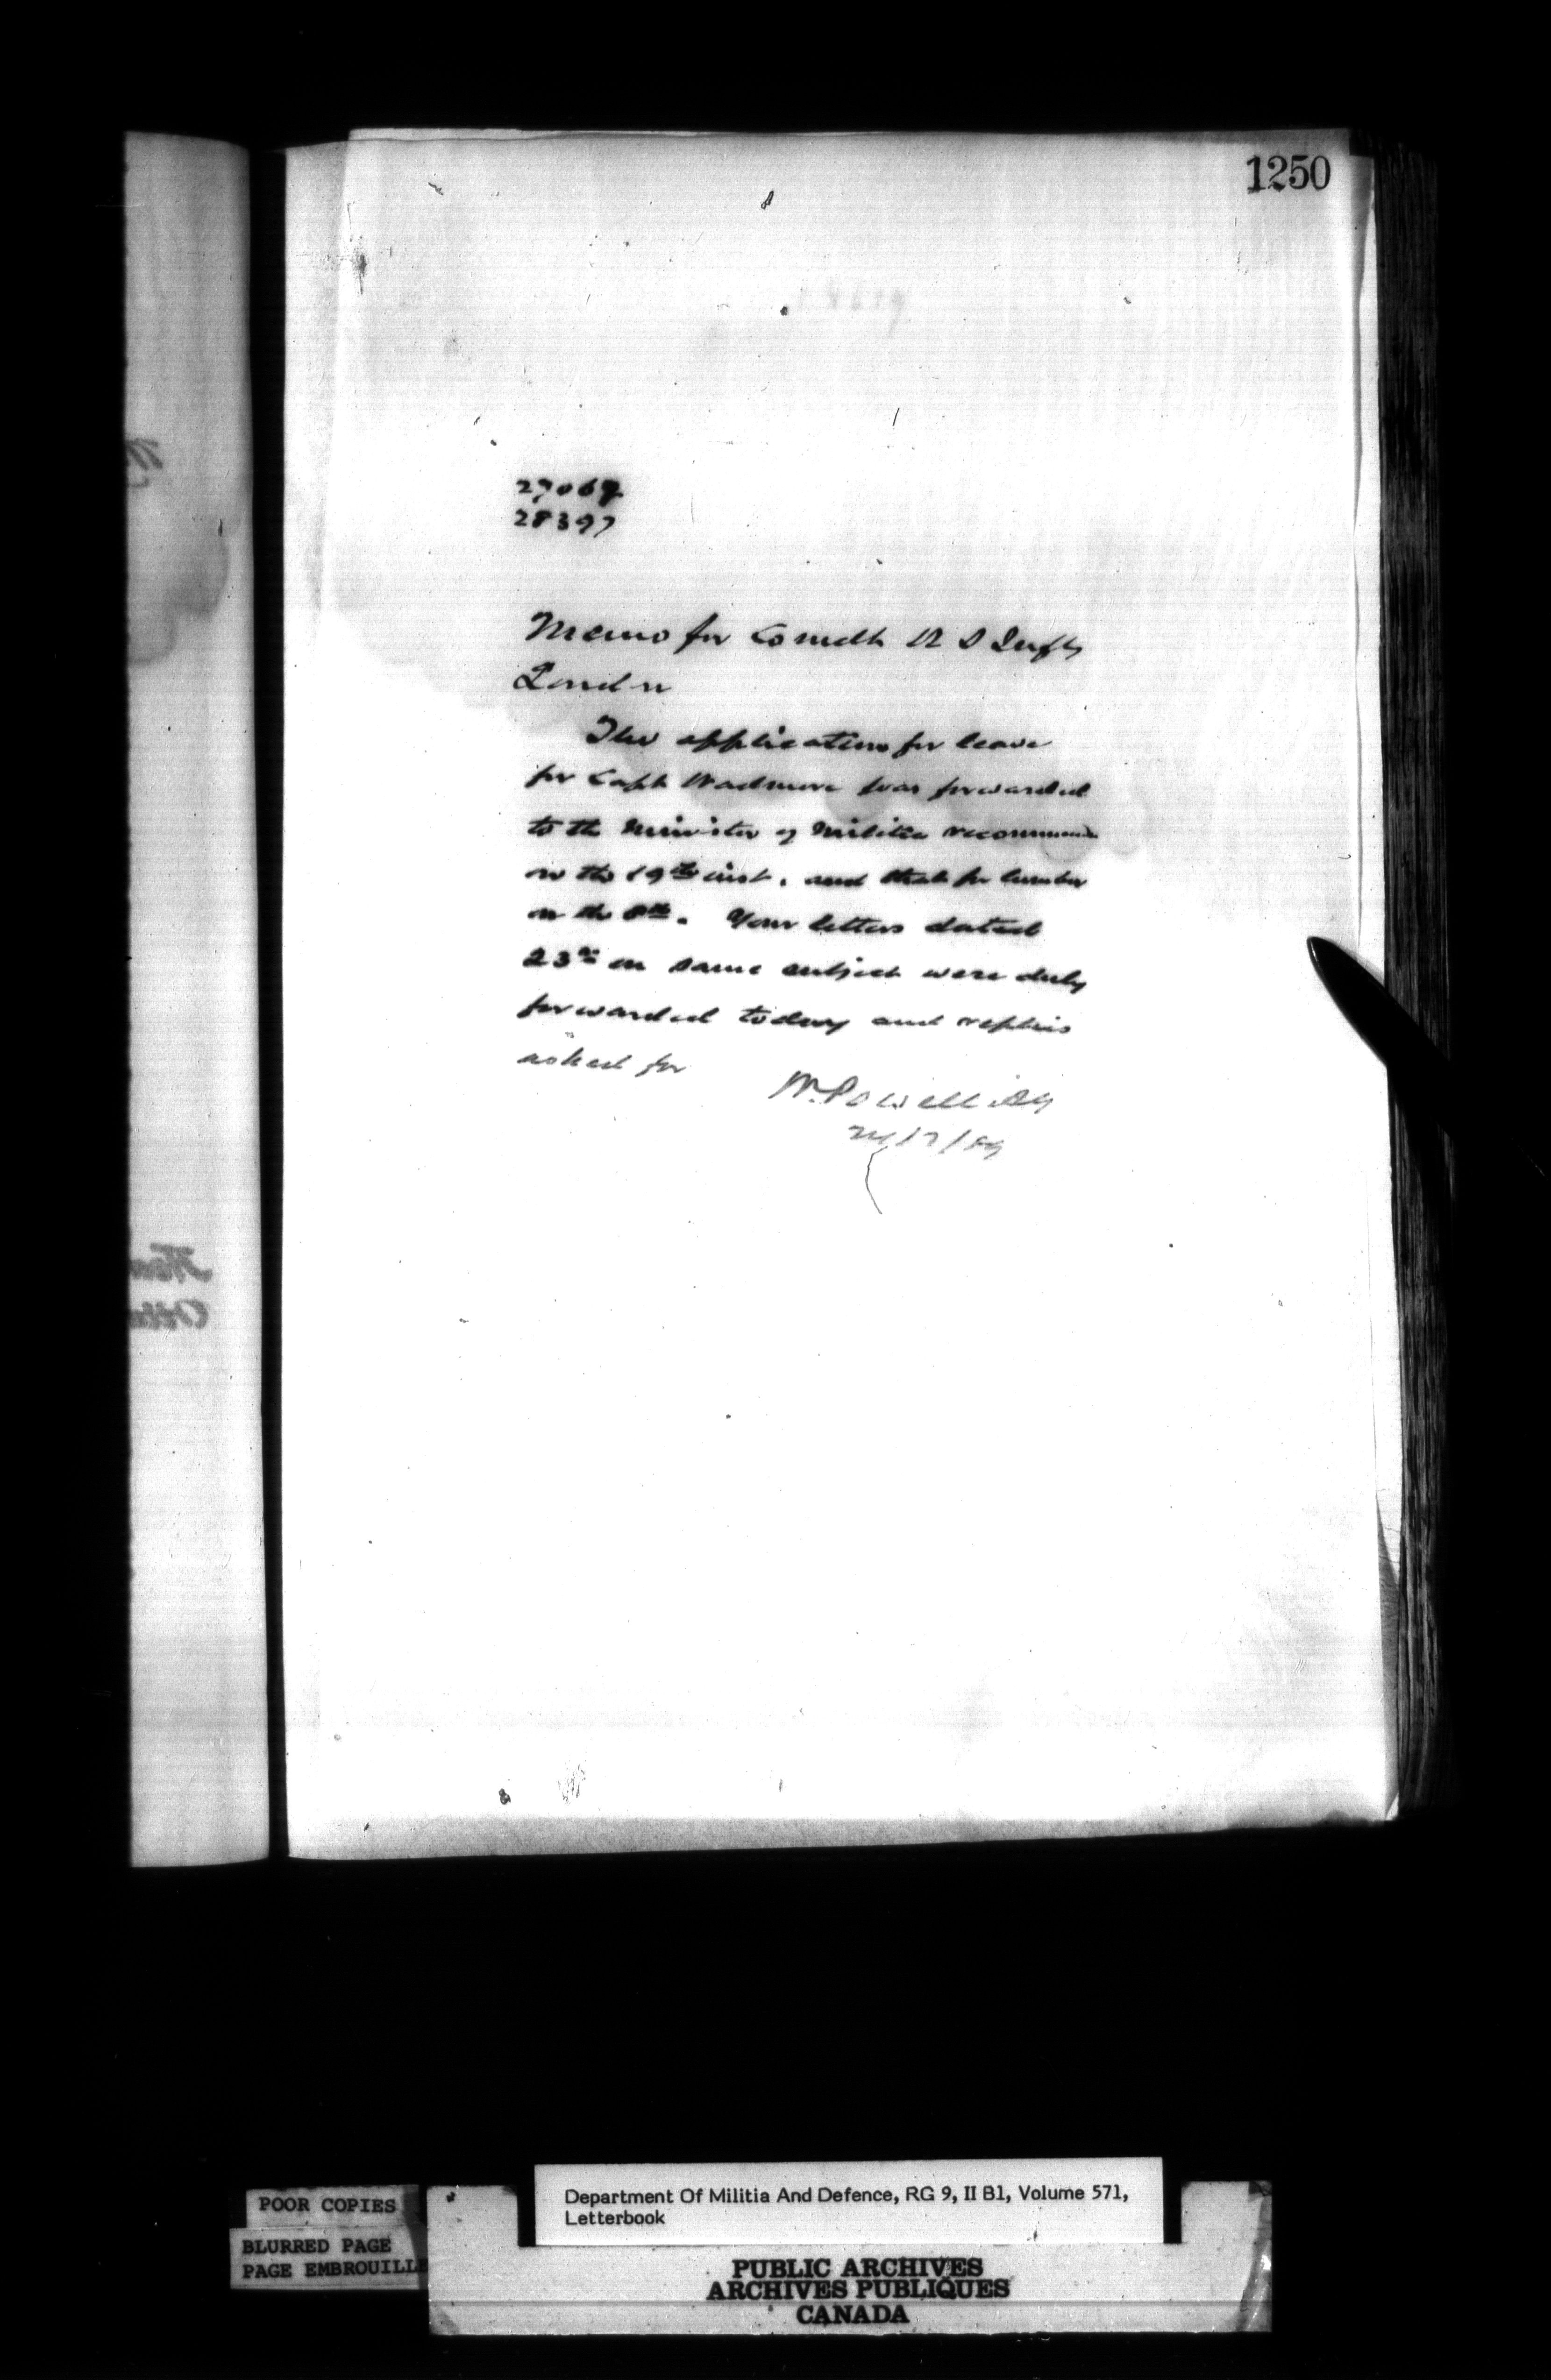 1250
27069
28397
Memo for Comdt R S Infy
London
The application for leave
for Capt Wadmore was forwarded
to the Minister of Militia recommended
on the 19th inst. and that for lumber
on the 8th. Your letters dated
23rd on same subject were duly
forwarded today and replies
asked for
W. Powell AG
POOR COPIES
BLURRED PAGE
PAGE EMBROUILLE
Department Of Militia And Defence, RG 9, II B1, Volume 571,
Letterbook
PUBLIC ARCHIVES
ARCHIVES PUBLIQUES
CANADA